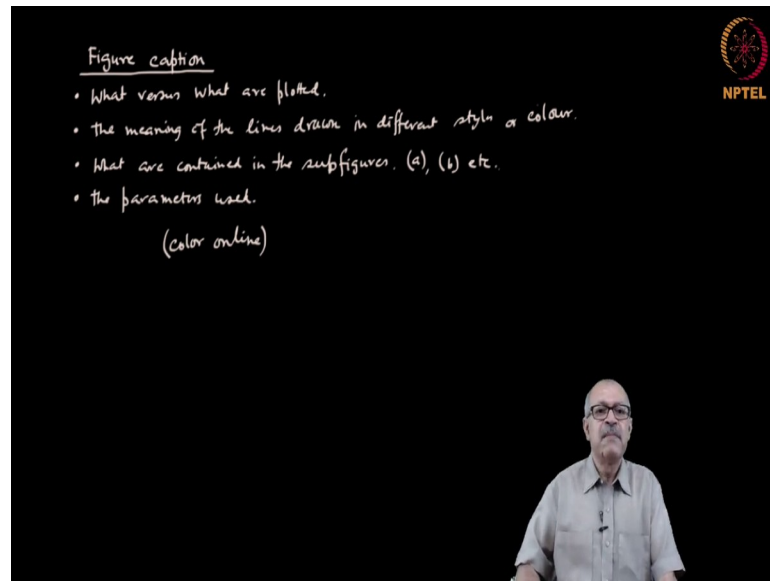 Figure caption
• What versus what are plotted.
• the meaning of the lines drawn in different styles or colour.
• What are contained in the subfigures. (a), (b) etc.
• the parameters used.
(color online)
NPTEL